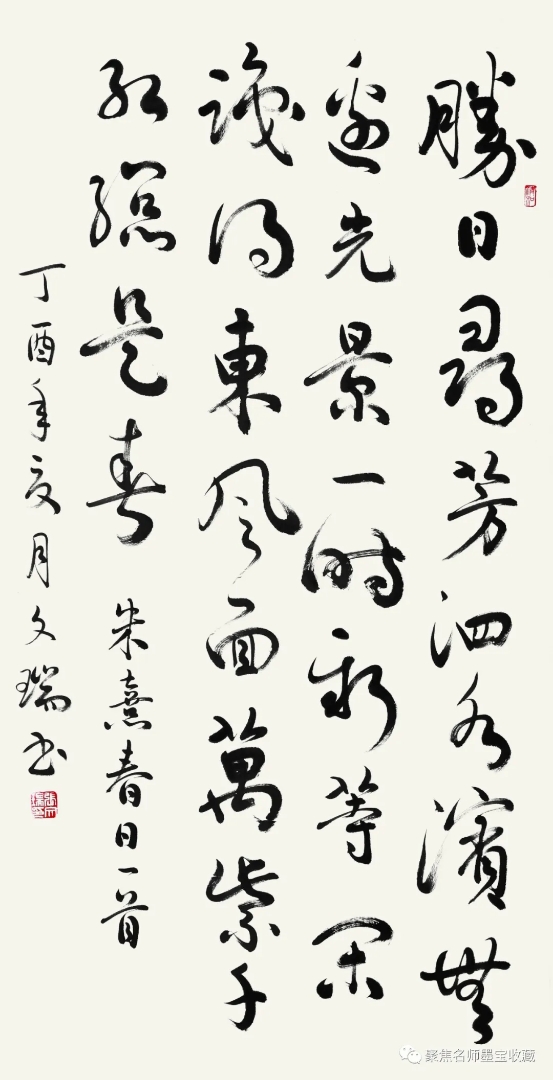 勝日尋芳泗水濱無
邊光景一時新等閑
識得東風面萬紫千
紅總是春
朱熹春日一首
丁酉年夏月文瑞書
聚焦名师墨宝收藏